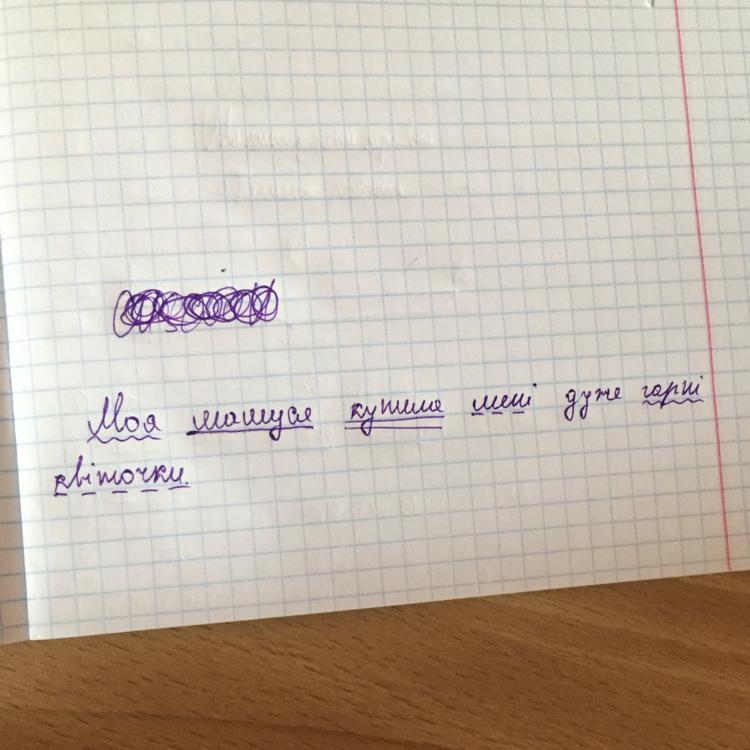 Моя матуся купила мені дуже гарні
квіточки.